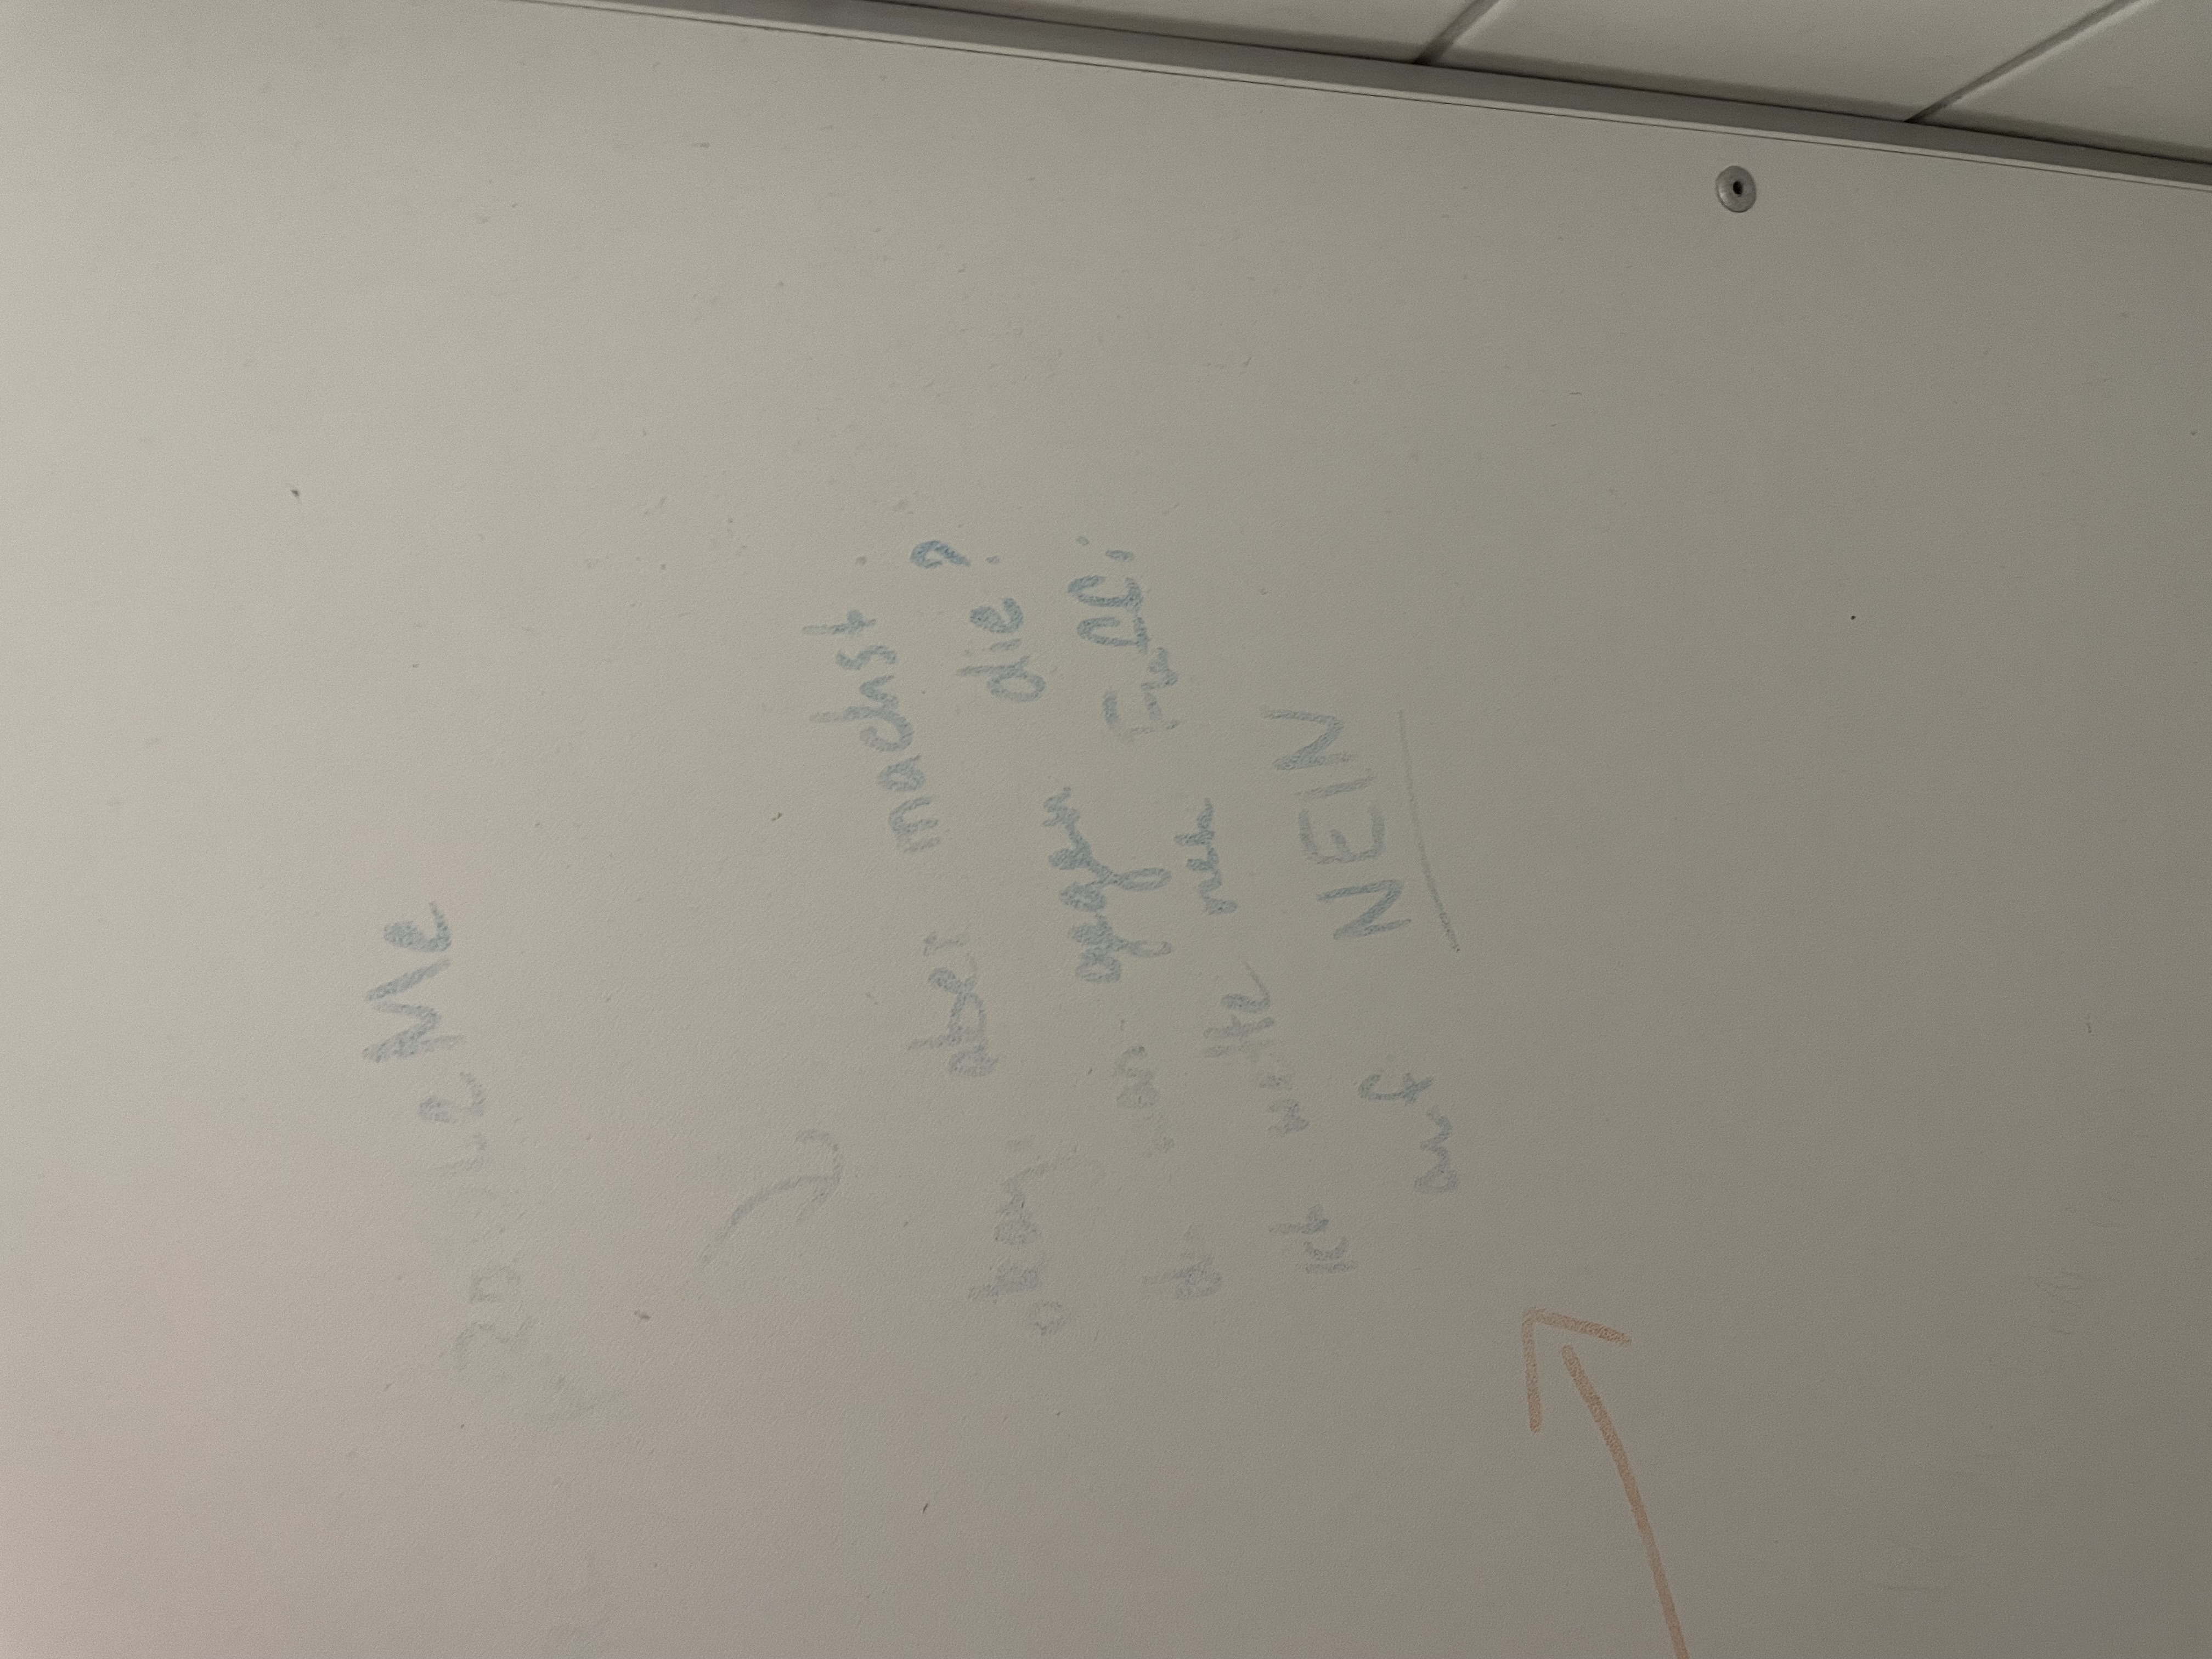 okay, aber machst
du was gegen die?
ich wette nen Fuffi
auf NEIN